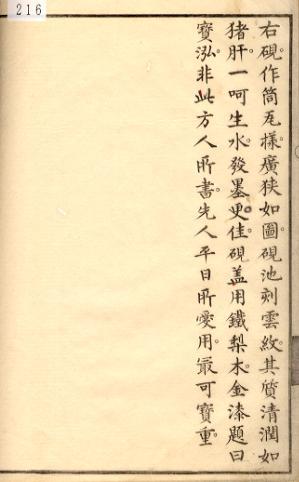 216
右硯作筒瓦樣廣狹如圖硯池刻雲紋其質清潤如
猪肝一呵生水發墨更佳硯盖用鐵梨木金漆題曰
寳泓非此方人所書先人平日所愛用最可寳重